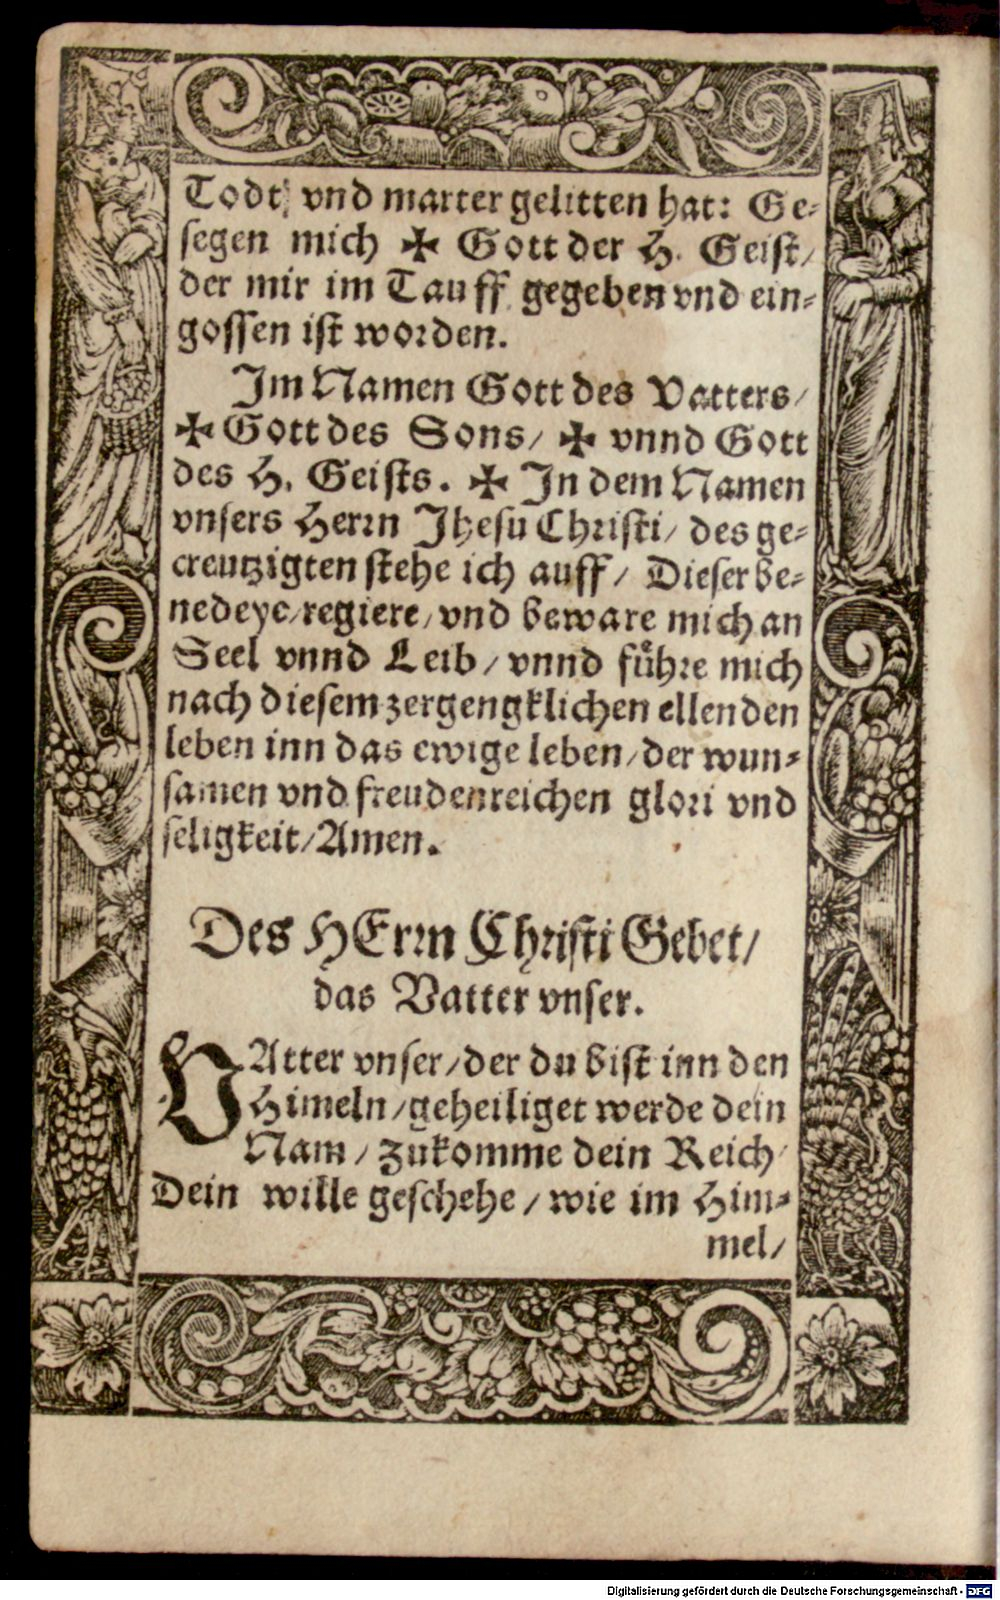 Todt, vnd marter gelitten hat: Ge-
segen mich ✠ Gott der H. Geist/
der mir im Tauff gegeben vnd ein-
gossen ist worden.
Im Namen Gott des Vatters/
✠ Gott des Sons/ ✠ vnnd Gott
des H. Geists. ✠ In dem Namen
vnsers Herrn Jhesu Christi/ des ge-
creutzigten stehe ich auff/ Dieser be-
nedeye/regiere/vnd beware mich an
Seel vnnd Leib/vnnd führe mich
nach diesem zergengklichen ellenden
leben inn das ewige leben/der wun-
samen vnd freudenreichen glori vnd
seligkeit/Amen.
Des HErrn Christi Gebet/
das Vatter vnser.
VAtter vnser/der du bist inn den
Himeln/geheiliget werde dein
Nam/zukomme dein Reich/
Dein wille geschehe/wie im Him-
mel/
Digitalisierung gefördert durch die Deutsche Forschungsgemeinschaft - DFG